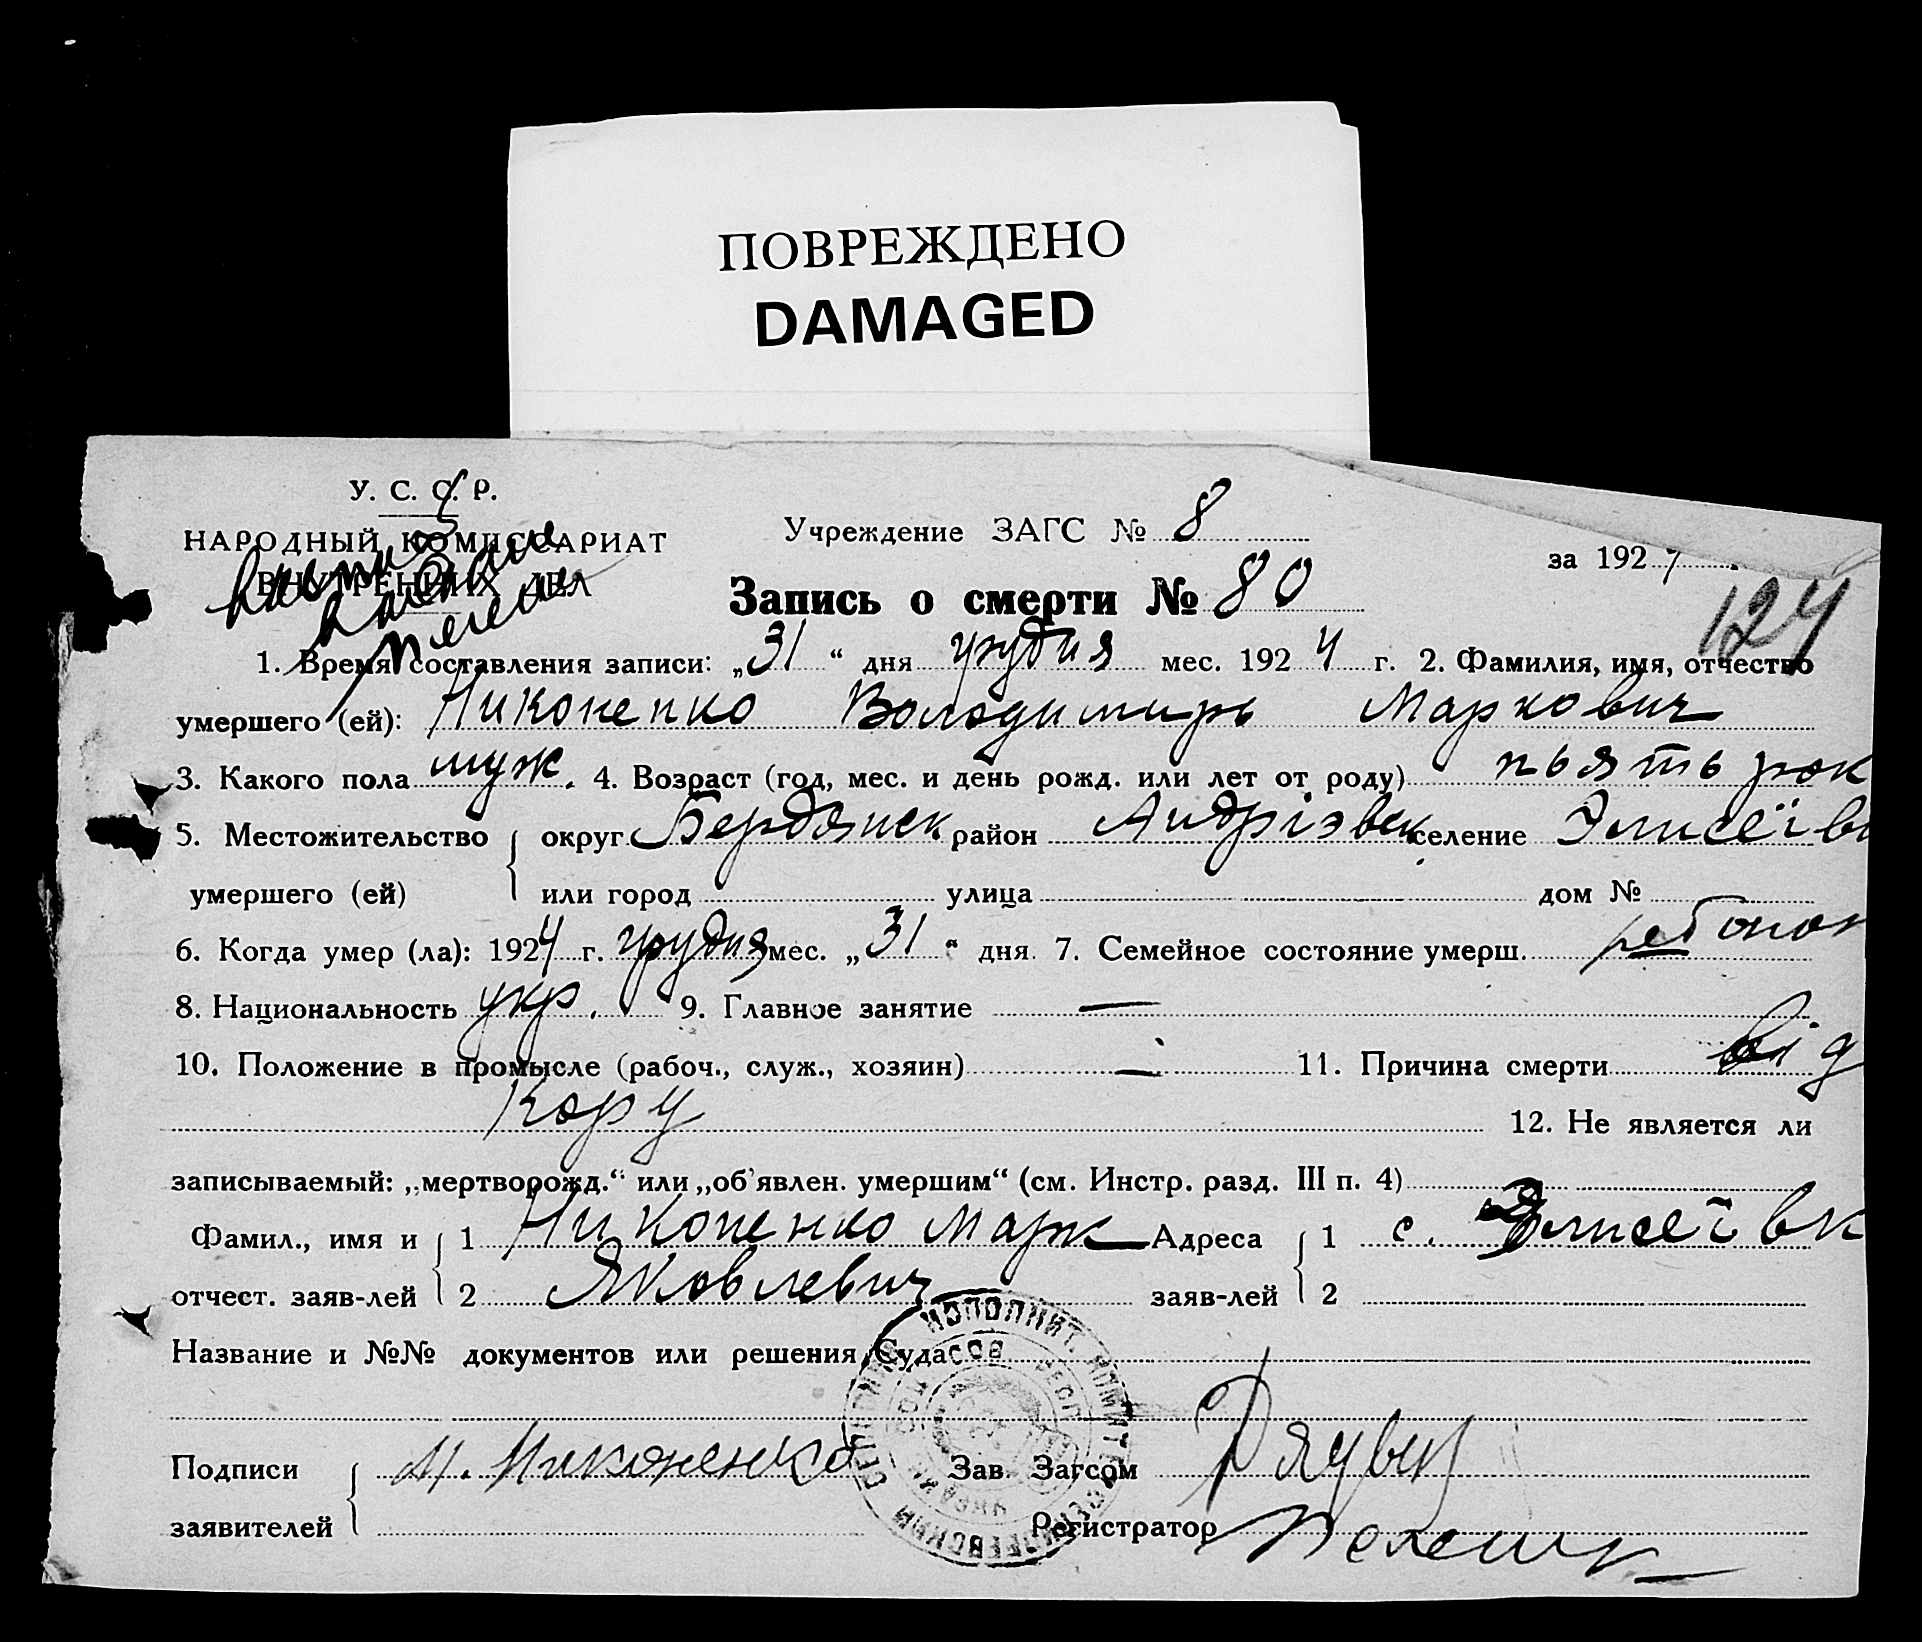 ПОВРЕЖДЕНО
DAMAGED
У. С. С. Р.
НАРОДНЫЙ КОМИССАРИАТ
ВНУТРЕННИХ ДЕЛ
Учреждение ЗАГС № 8
за 1924
Запись о смерти № 80
124
1. Время составления записи: „31“ дня грудня мес. 1924 г. 2. Фамилия, имя, отчество
умершего (ей): Никоненко Володимирь Маркович
3. Какого пола муж. 4. Возраст (год, мес. и день рожд. или лет от роду) пьять рок
5. Местожительство округ Бердянск район Андрiэвск селение Элисеївк
умершего (ей) или город улица дом №
6. Когда умер (ла): 1924 г. грудня мес. „31“ дня. 7. Семейное состояние умерш. ребонок
8. Национальность укр. 9. Главное занятие —
10. Положение в промысле (рабоч., служ., хозяин) — 11. Причина смерти вiд
кору 12. Не является ли
записываемый: „мертворожд.“ или „об'явлен. умершим“ (см. Инстр. разд. III п. 4)
Фамил., имя и 1 Никоненко Марк Адреса 1 с. Элисеївк
отчест. заяв-лей 2 Яковлевич заяв-лей 2
Название и №№ документов или решения Суда
Подписи М. Никоненко Зав. Загсом
заявителей Регистратор
ИСПОЛНИТ. КОМИТЕТ